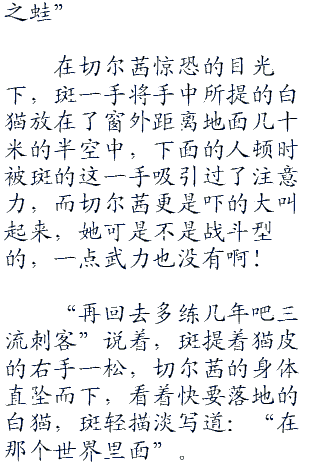 之蛙”
在切尔茜惊恐的目光
下，斑一手将手中所提的白
猫放在了窗外距离地面几十
米的半空中，下面的人顿时
被斑的这一手吸引过了注意
力，而切尔茜更是吓的大叫
起来，她可是不是战斗型
的，一点武力也没有啊！
“再回去多练几年吧三
流刺客”说着，斑提着猫皮
的右手一松，切尔茜的身体
直坠而下，看着快要落地的
白猫，斑轻描淡写道：“在
那个世界里面”。